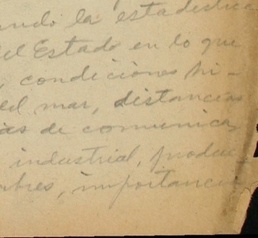 ando la estadística
del Estado en lo que
, condiciones hi-
del mar, distancias
ias de comunica
industrial, produc-
mbres, importancia